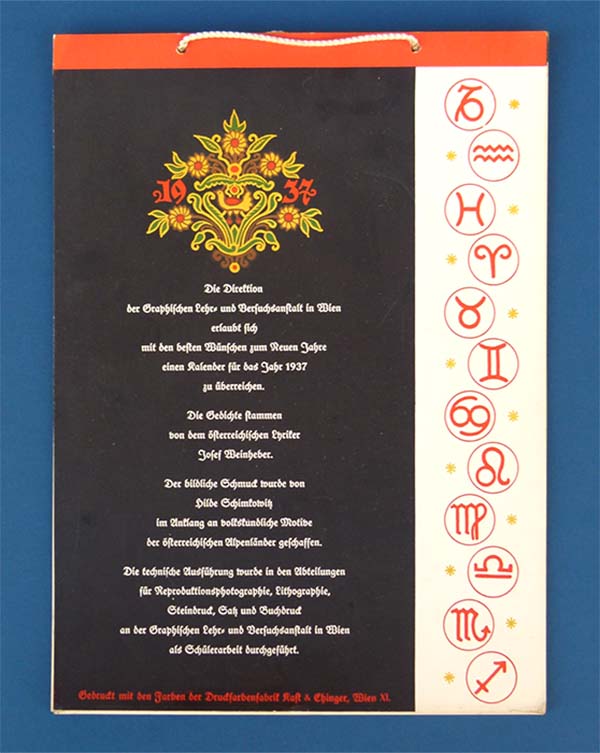 1937
Die Direktion
der Graphischen Lehr- und Versuchsanstalt in Wien
erlaubt sich
mit den besten Wünschen zum Neuen Jahre
einen Kalender für das Jahr 1937
zu überreichen.
Die Gedichte stammen
von dem österreichischen Lyriker
Josef Weinheber.
Der bildliche Schmuck wurde von
Hilde Schimkowitz
im Anklang an volkskundliche Motive
der österreichischen Alpenländer geschaffen.
Die technische Ausführung wurde in den Abteilungen
für Reproduktionsphotographie, Lithographie,
Steindruck, Satz und Buchdruck
an der Graphischen Lehr- und Versuchsanstalt in Wien
als Schülerarbeit durchgeführt.
Gedruckt mit den Farben der Druckfarbenfabrik Kast & Ehinger, Wien XI.